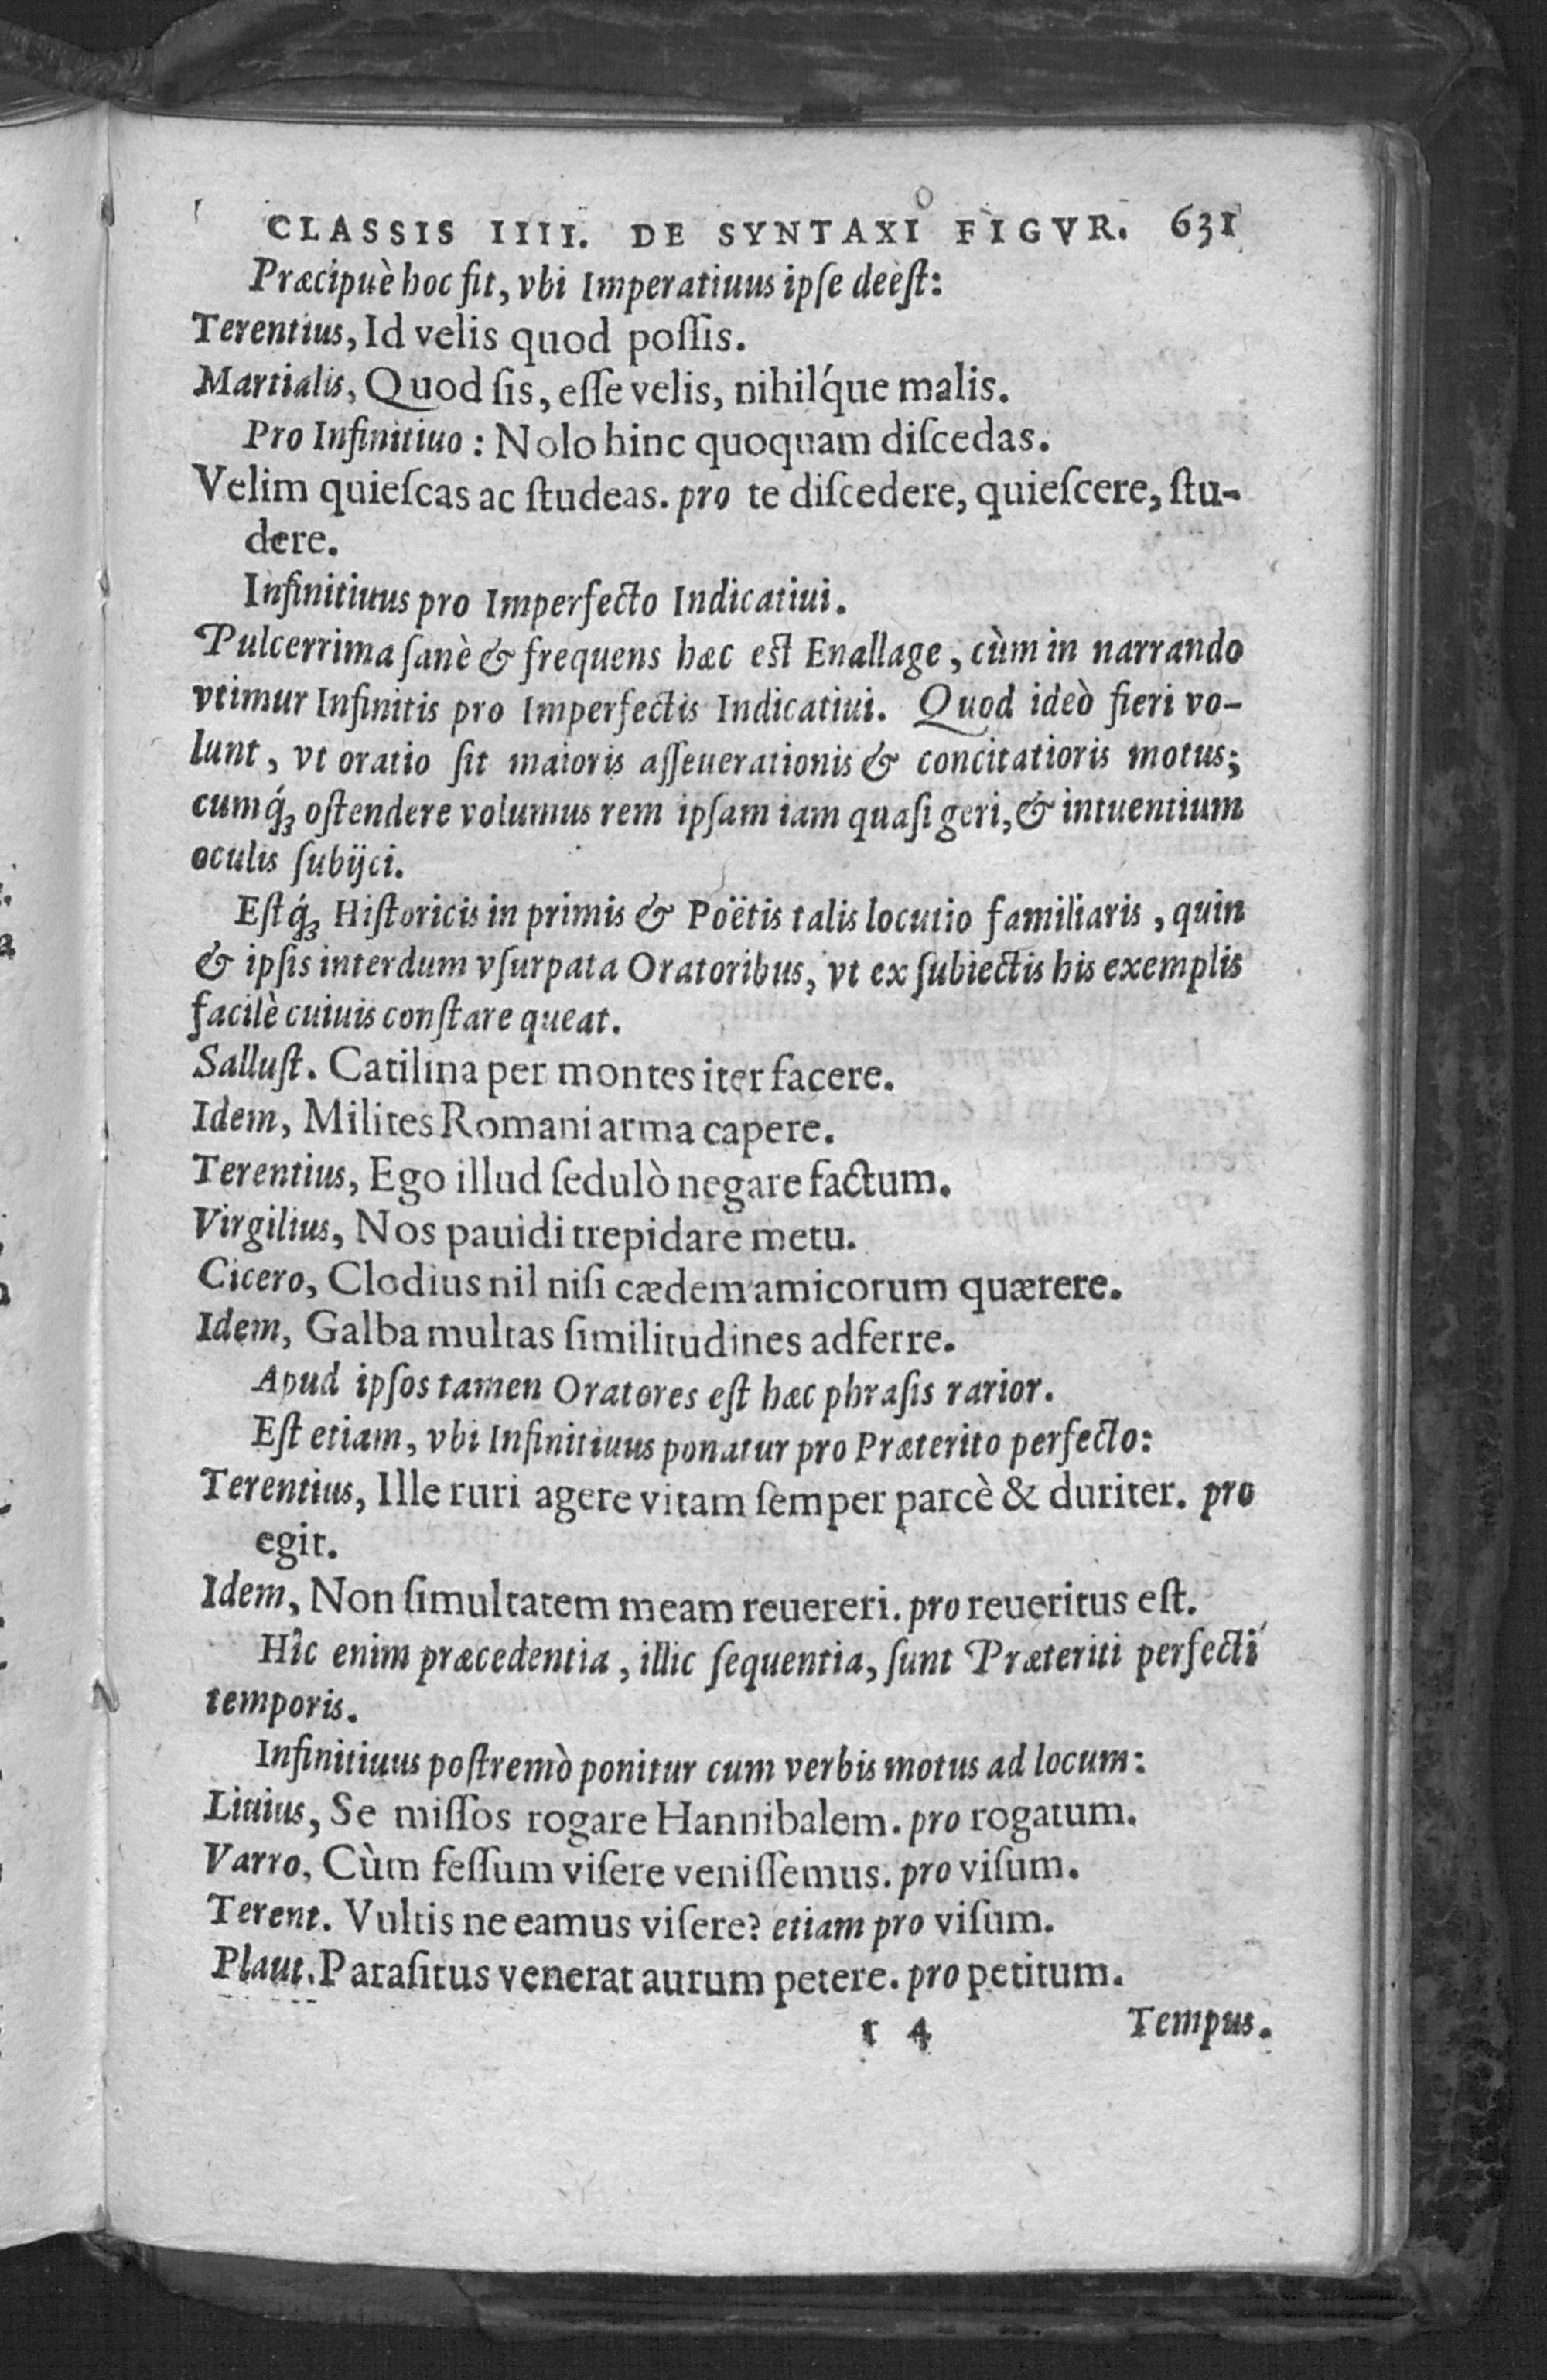 CLASSIS IIII. DE SYNTAXI FIGVR. 631
Præcipuè hoc fit, vbi Imperatiuus ipſe deeſt:
Terentius, Id velis quod poſſis.
Martialis, Quod ſis, eſſe velis, nihilq́ue malis.
Pro Infinitiuo: Nolo hinc quoquam diſcedas.
Velim quieſcas ac ſtudeas. pro te diſcedere, quieſcere, ſtu-
dere.
Infinitiuus pro Imperfecto Indicatiui.
Pulcerrima ſanè & frequens hæc eſt Enallage, cùm in narrando
vtimur Infinitis pro Imperfectis Indicatiui. Quod ideò fieri vo-
lunt, vt oratio ſit maioris aſſeuerationis & concitatioris motus;
cumq́ꝫ oſtendere volumus rem ipſam iam quaſi geri, & intuentium
oculis ſubijci.
Eſtq́ꝫ Hiſtoricis in primis & Poëtis talis locutio familiaris, quin
& ipſis interdum vſurpata Oratoribus, vt ex ſubiectis his exemplis
facilè cuiuis conſtare queat.
Salluſt. Catilina per montes iter facere.
Idem, Milites Romani arma capere.
Terentius, Ego illud ſedulò negare factum.
Virgilius, Nos pauidi trepidare metu.
Cicero, Clodius nil niſi cædem amicorum quærere.
Idem, Galba multas ſimilitudines adferre.
Apud ipſos tamen Oratores eſt hæc phraſis rarior.
Eſt etiam, vbi Infinitiuus ponatur pro Præterito perfecto:
Terentius, Ille ruri agere vitam ſemper parcè & duriter. pro
egit.
Idem, Non ſimultatem meam reuereri. pro reueritus eſt.
Hîc enim præcedentia, illic ſequentia, ſunt Præteriti perfecti
temporis.
Infinitiuus poſtremò ponitur cum verbis motus ad locum:
Liuius, Se miſſos rogare Hannibalem. pro rogatum.
Varro, Cùm feſſum viſere veniſſemus. pro viſum.
Terent. Vultis ne eamus viſere? etiam pro viſum.
Plaut. Paraſitus venerat aurum petere. pro petitum.
r 4 Tempus.